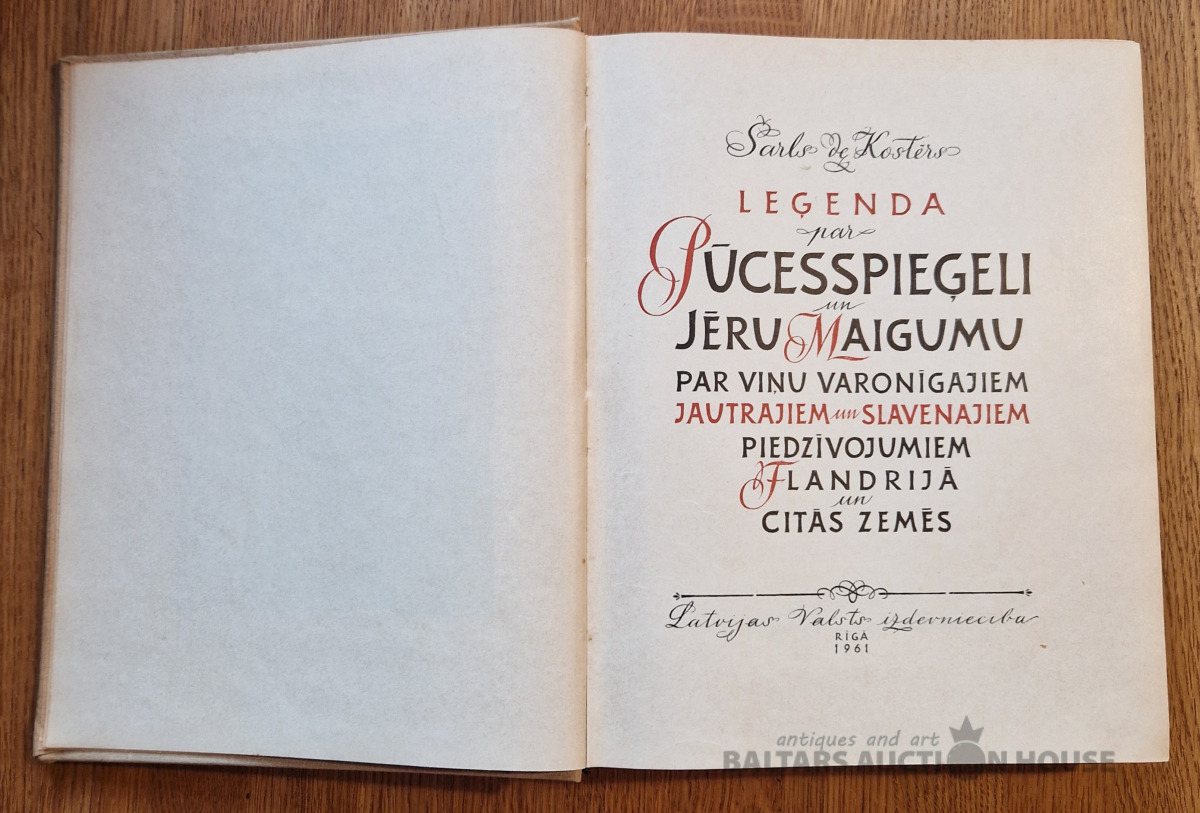 Šarls de Kostērs
LEĢENDA
par
PŪCESSPIEĢELI
un
JĒRU MAIGUMU
PAR VIŅU VARONĪGAJIEM
JAUTRAJIEM un SLAVENAJIEM
PIEDZĪVOJUMIEM
FLANDRIJĀ
un
CITĀS ZEMĒS
Latvijas Valsts izdevniecība
RĪGĀ
1961
antiques and art
BALTARS AUCTION HOUSE